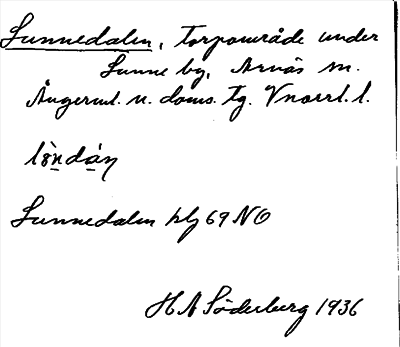 Sunnedalen, torpområde under
Sunne by, Arnäs sn.
Ångerml. n. doms. tg. Vnorrl. l.
Sunnedalen kbl 69 NO
H A Söderberg 1936